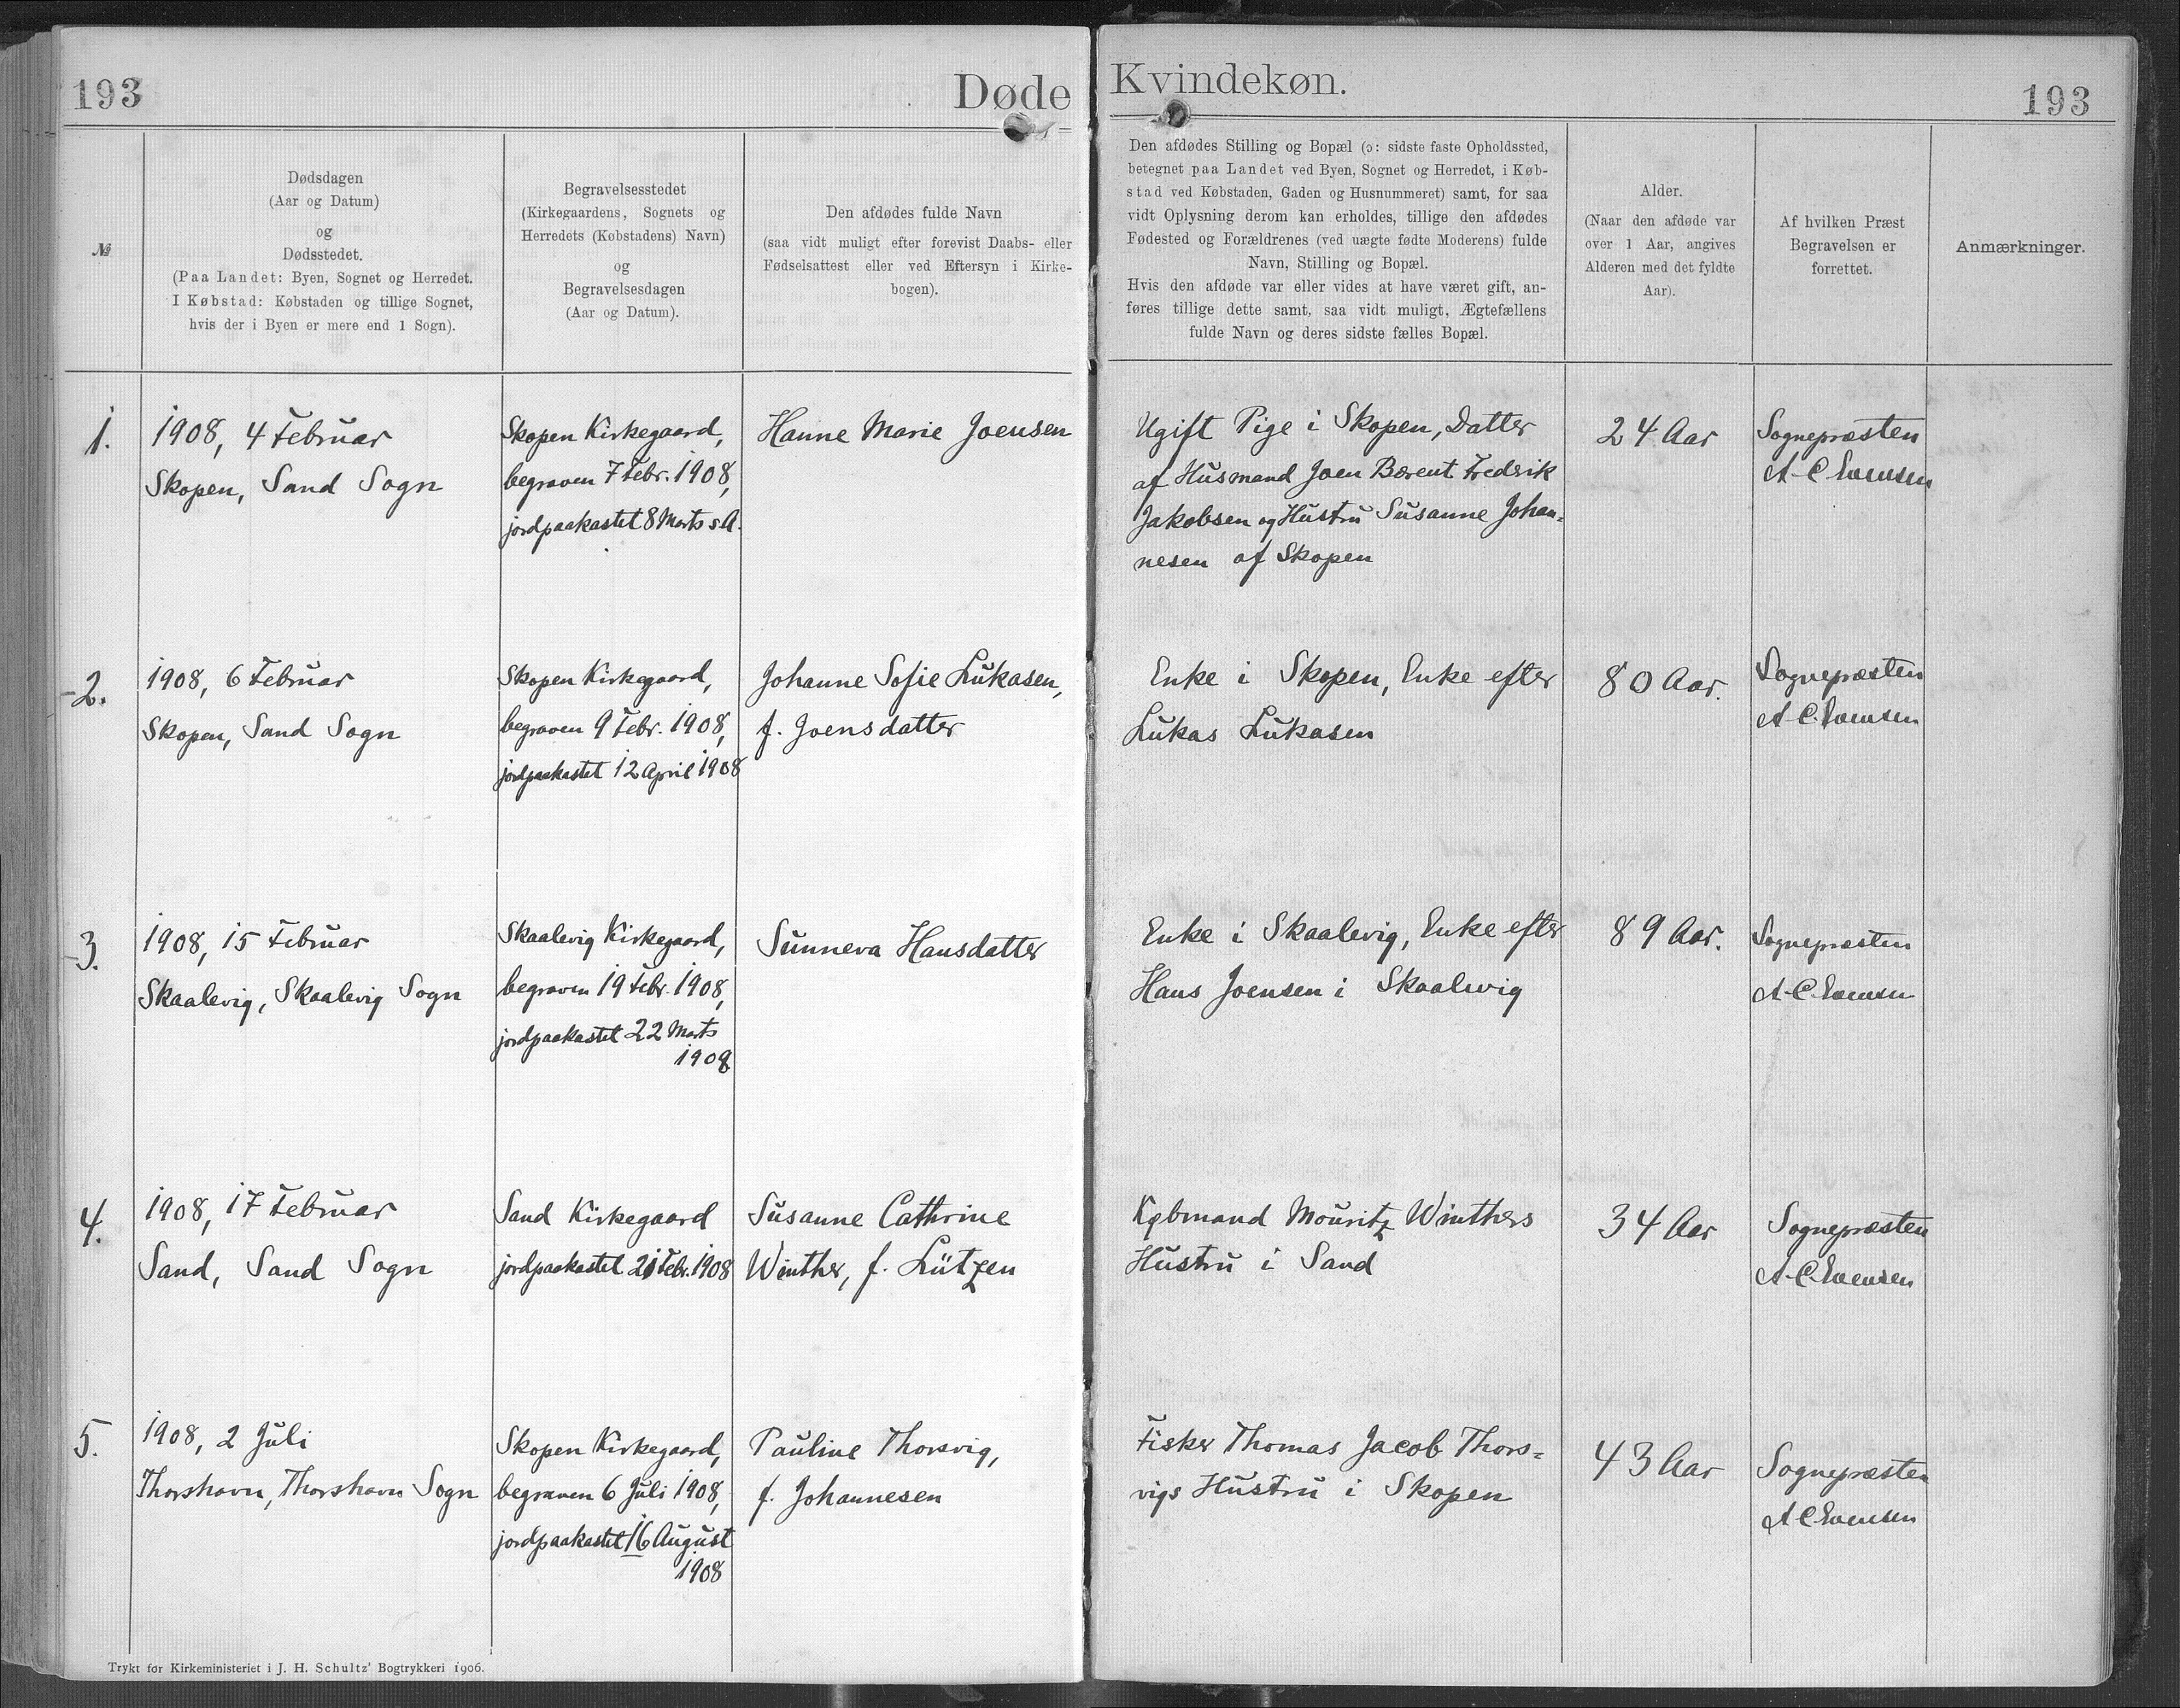 193
Døde Kvindekøn.
193
№
Dødsdagen
(Aar og Datum)
og
Dødsstedet.
(Paa Landet: Byen, Sognet og Herredet.
I Købstad: Købstaden og tillige Sognet,
hvis der i Byen er mere end 1 Sogn).
Begravelsesstedet
(Kirkegaardens, Sognets og
Herredets (Købstadens) Navn)
og
Begravelsesdagen
(Aar og Datum).
Den afdødes fulde Navn
(saa vidt muligt efter forevist Daabs- eller
Fødselsattest eller ved Eftersyn i Kirke-
bogen).
Den afdødes Stilling og Bopæl (ɔ: sidste faste Opholdssted,
betegnet paa Landet ved Byen, Sognet og Herredet, i Køb-
stad ved Købstaden, Gaden og Husnummeret) samt, for saa
vidt Oplysning derom kan erholdes, tillige den afdødes
Fødested og Forældrenes (ved uægte fødte Moderens) fulde
Navn, Stilling og Bopæl.
Hvis den afdøde var eller vides at have været gift, an-
føres tillige dette samt, saa vidt muligt, Ægtefællens
fulde Navn og deres sidste fælles Bopæl.
Alder.
(Naar den afdøde var
over 1 Aar, angives
Alderen med det fyldte
Aar).
Af hvilken Præst
Begravelsen er
forrettet.
Anmærkninger.
1.
1908, 4 Februar
Skopen, Sand Sogn
Skopen Kirkegaard,
begraven 7 Febr. 1908,
jordpaakastet 8 Marts s.A.
Hanne Marie Joensen
Ugift Pige i Skopen, Datter
af Husmand Joen Berent Fredrik
Jakobsen og Hustru Susanne Johan=
nesen af Skopen
24 Aar
Sognepræsten
A. C. Evensen
2.
1908, 6 Februar
Skopen, Sand Sogn
Skopen Kirkegaard,
begraven 9 Febr. 1908,
jordpaakastet 12 April 1908
Johanne Sofie Lukasen,
f. Joensdatter
Enke i Skopen, Enke efter
Lukas Lukasen
80 Aar.
Sognepræsten
A. C. Evensen
3.
1908, 15 Februar
Skaalevig, Skaalevig Sogn
Skaalevig Kirkegaard,
begraven 19 Febr. 1908,
jordpaakastet 22 Marts
1908
Sunneva Hansdatter
Enke i Skaalevig, Enke efter
Hans Joensen i Skaalevig
89 Aar.
Sognepræsten
A. C. Evensen
4.
1908, 17 Februar
Sand, Sand Sogn
Sand Kirkegaard
jordpaakastet 21 Febr. 1908
Susanne Cathrine
Winther, f. Lützen
Købmand Mouritz Winthers
Hustru i Sand
34 Aar
Sognepræsten
A. C. Evensen
5.
1908, 2 Juli
Thorshavn, Thorshavn Sogn
Skopen Kirkegaard,
begraven 6 Juli 1908,
jordpaakastet 16 August
1908
Pauline Thorsvig,
f. Johannesen
Fisker Thomas Jacob Thors=
vigs Hustru i Skopen
43 Aar
Sognepræsten
A. C. Evensen
Trykt for Kirkeministeriet i J. H. Schultz' Bogtrykkeri 1906.